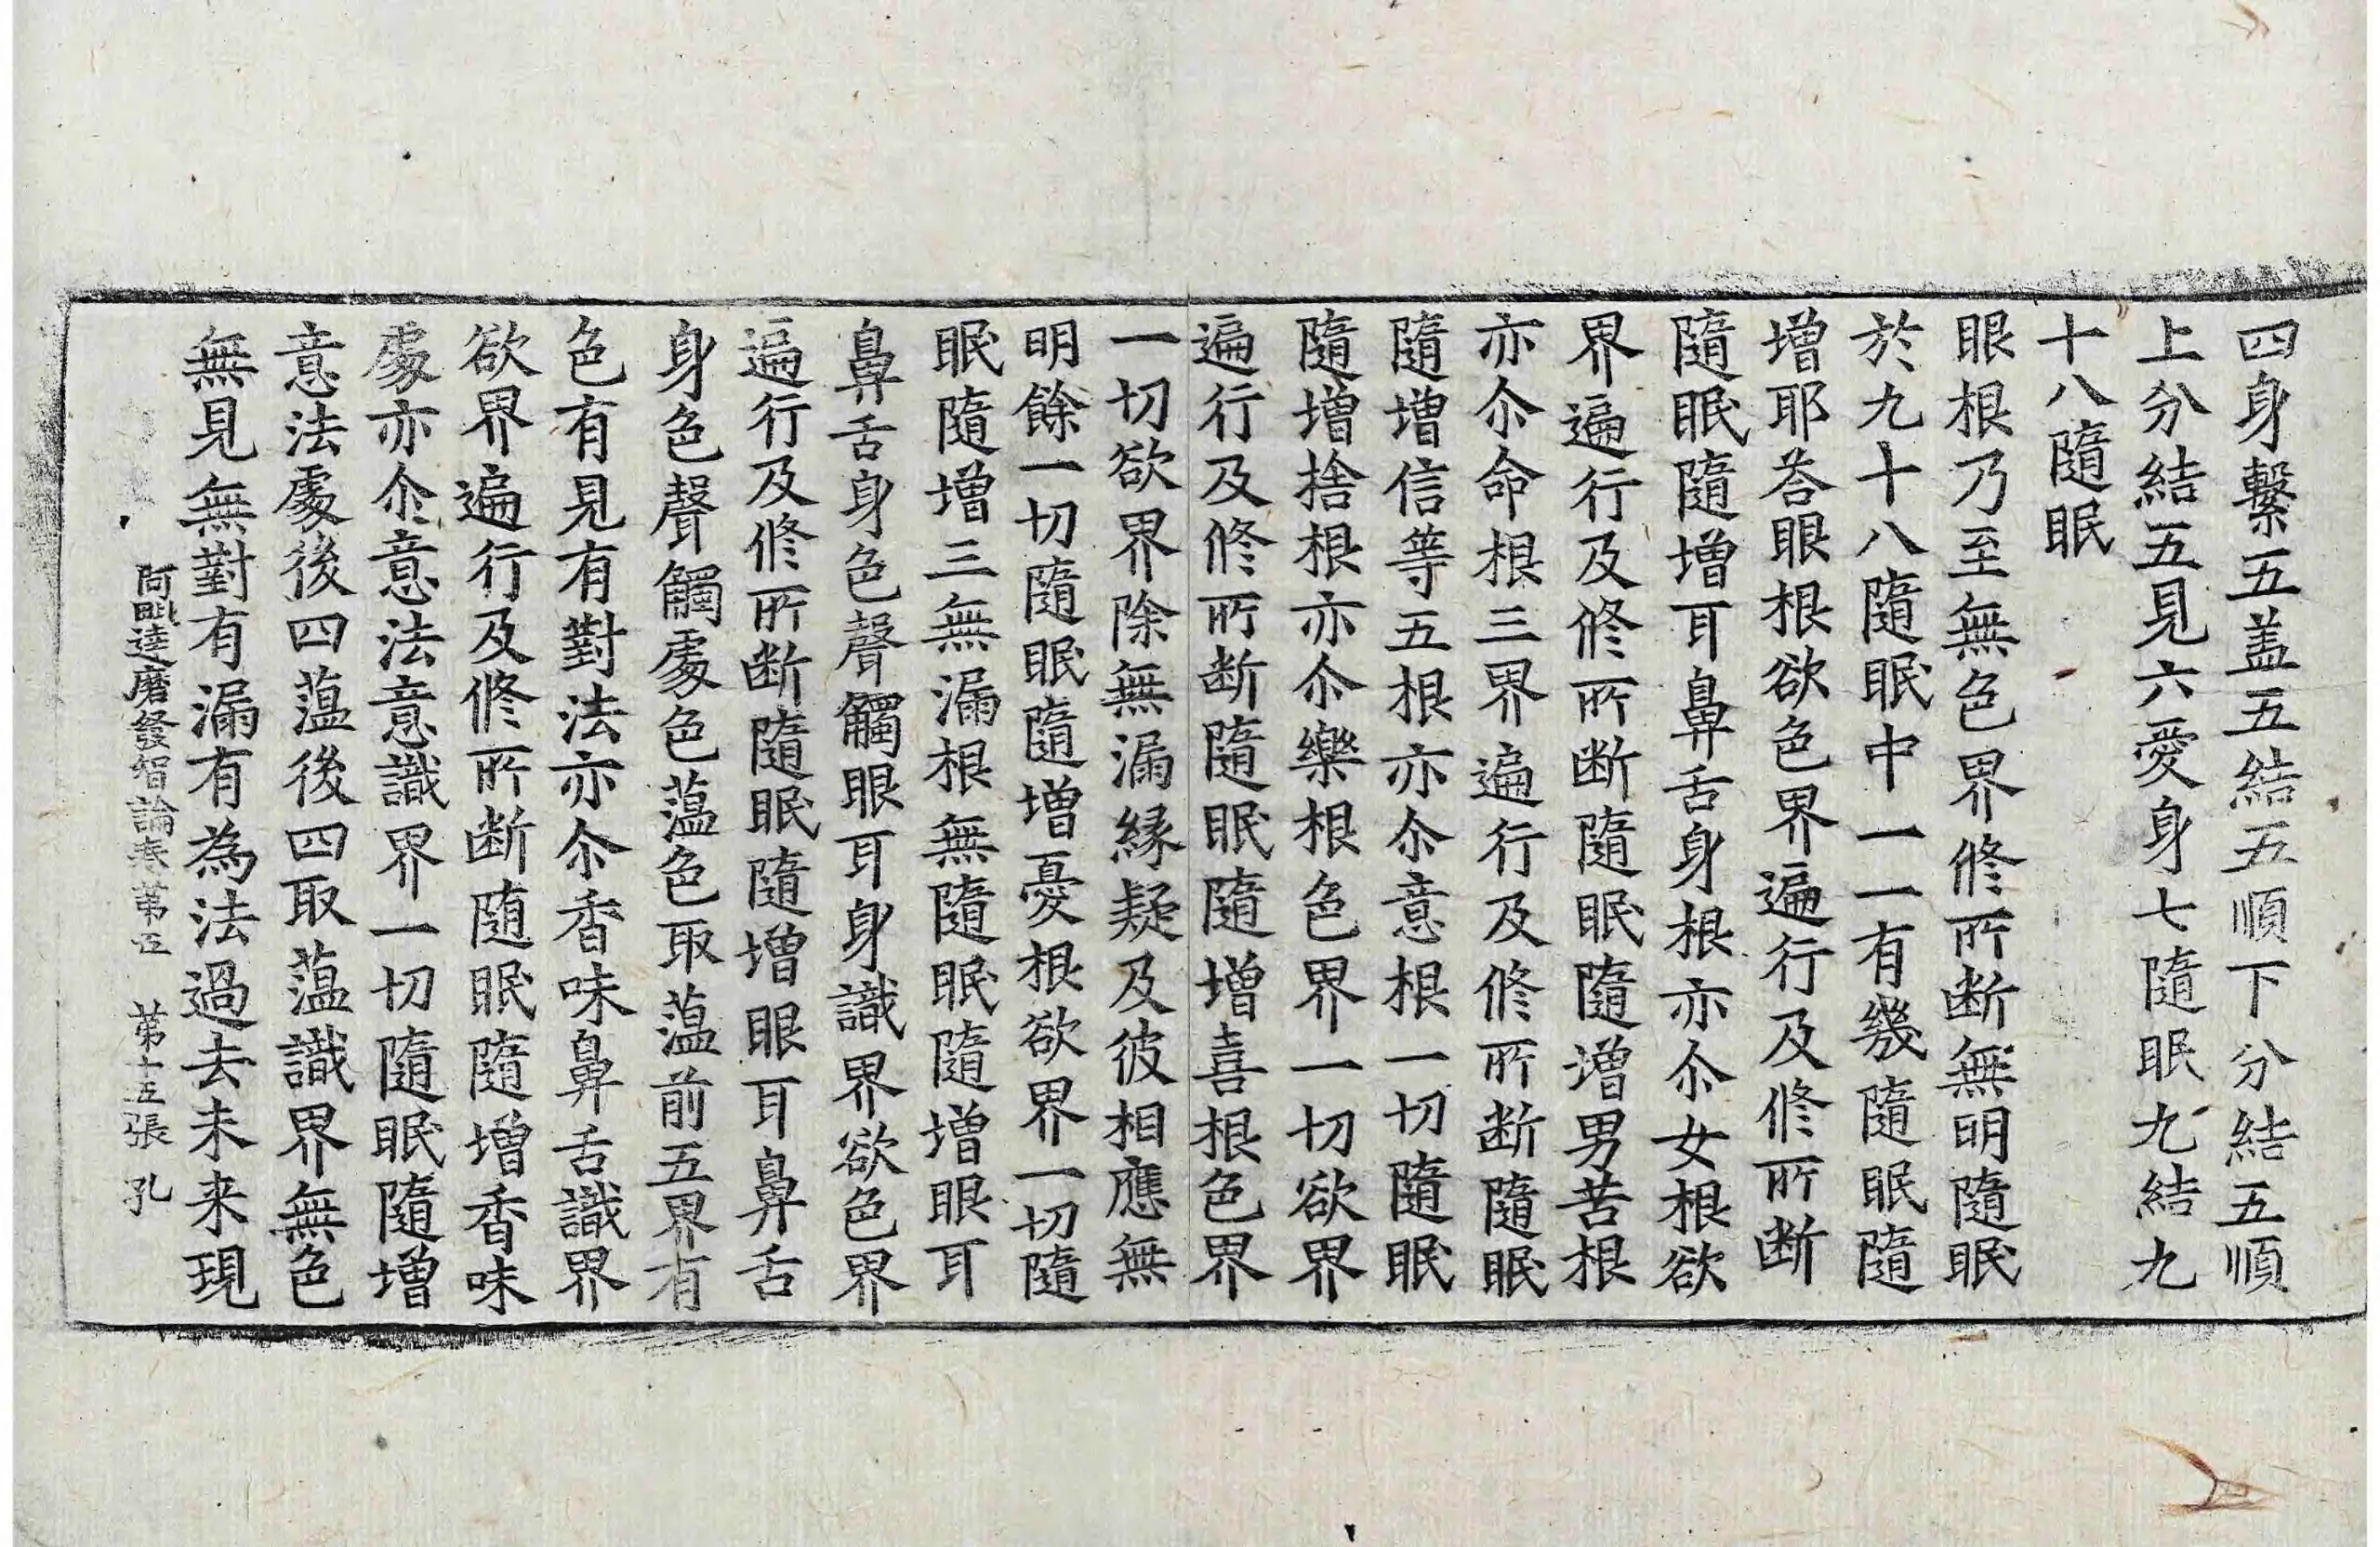 四身繫五盖五結五順下分結五順
上分結五見六愛身七隨眠九結九
十八隨眠
眼根乃至無色界修所断無明隨眠
於九十八隨眠中一一有幾隨眠隨
增耶荅眼根欲色界遍行及修所断
隨眠隨增耳鼻舌身根亦尒女根欲
界遍行及修所断隨眠隨增男苦根
亦尒命根三界遍行及修所断隨眠
隨增信等五根亦尒意根一切隨眠
隨增捨根亦尒樂根色界一切欲界
遍行及修所断隨眠隨增喜根色界
一切欲界除無漏緣疑及彼相應無
明餘一切隨眠隨增憂根欲界一切隨
眠隨增三無漏根無隨眠隨增眼耳
鼻舌身色聲觸眼耳身識界欲色界
遍行及修所断隨眠隨增眼耳鼻舌
身色聲觸處色蘊色取蘊前五界有
色有見有對法亦尒香味鼻舌識界
欲界遍行及修所断随眠隨增香味
處亦尒意法意識界一切隨眠隨增
意法處後四蘊後四取蘊識界無色
無見無對有漏有為法過去未来現
阿毗達磨發智論卷第五 第十五張 孔